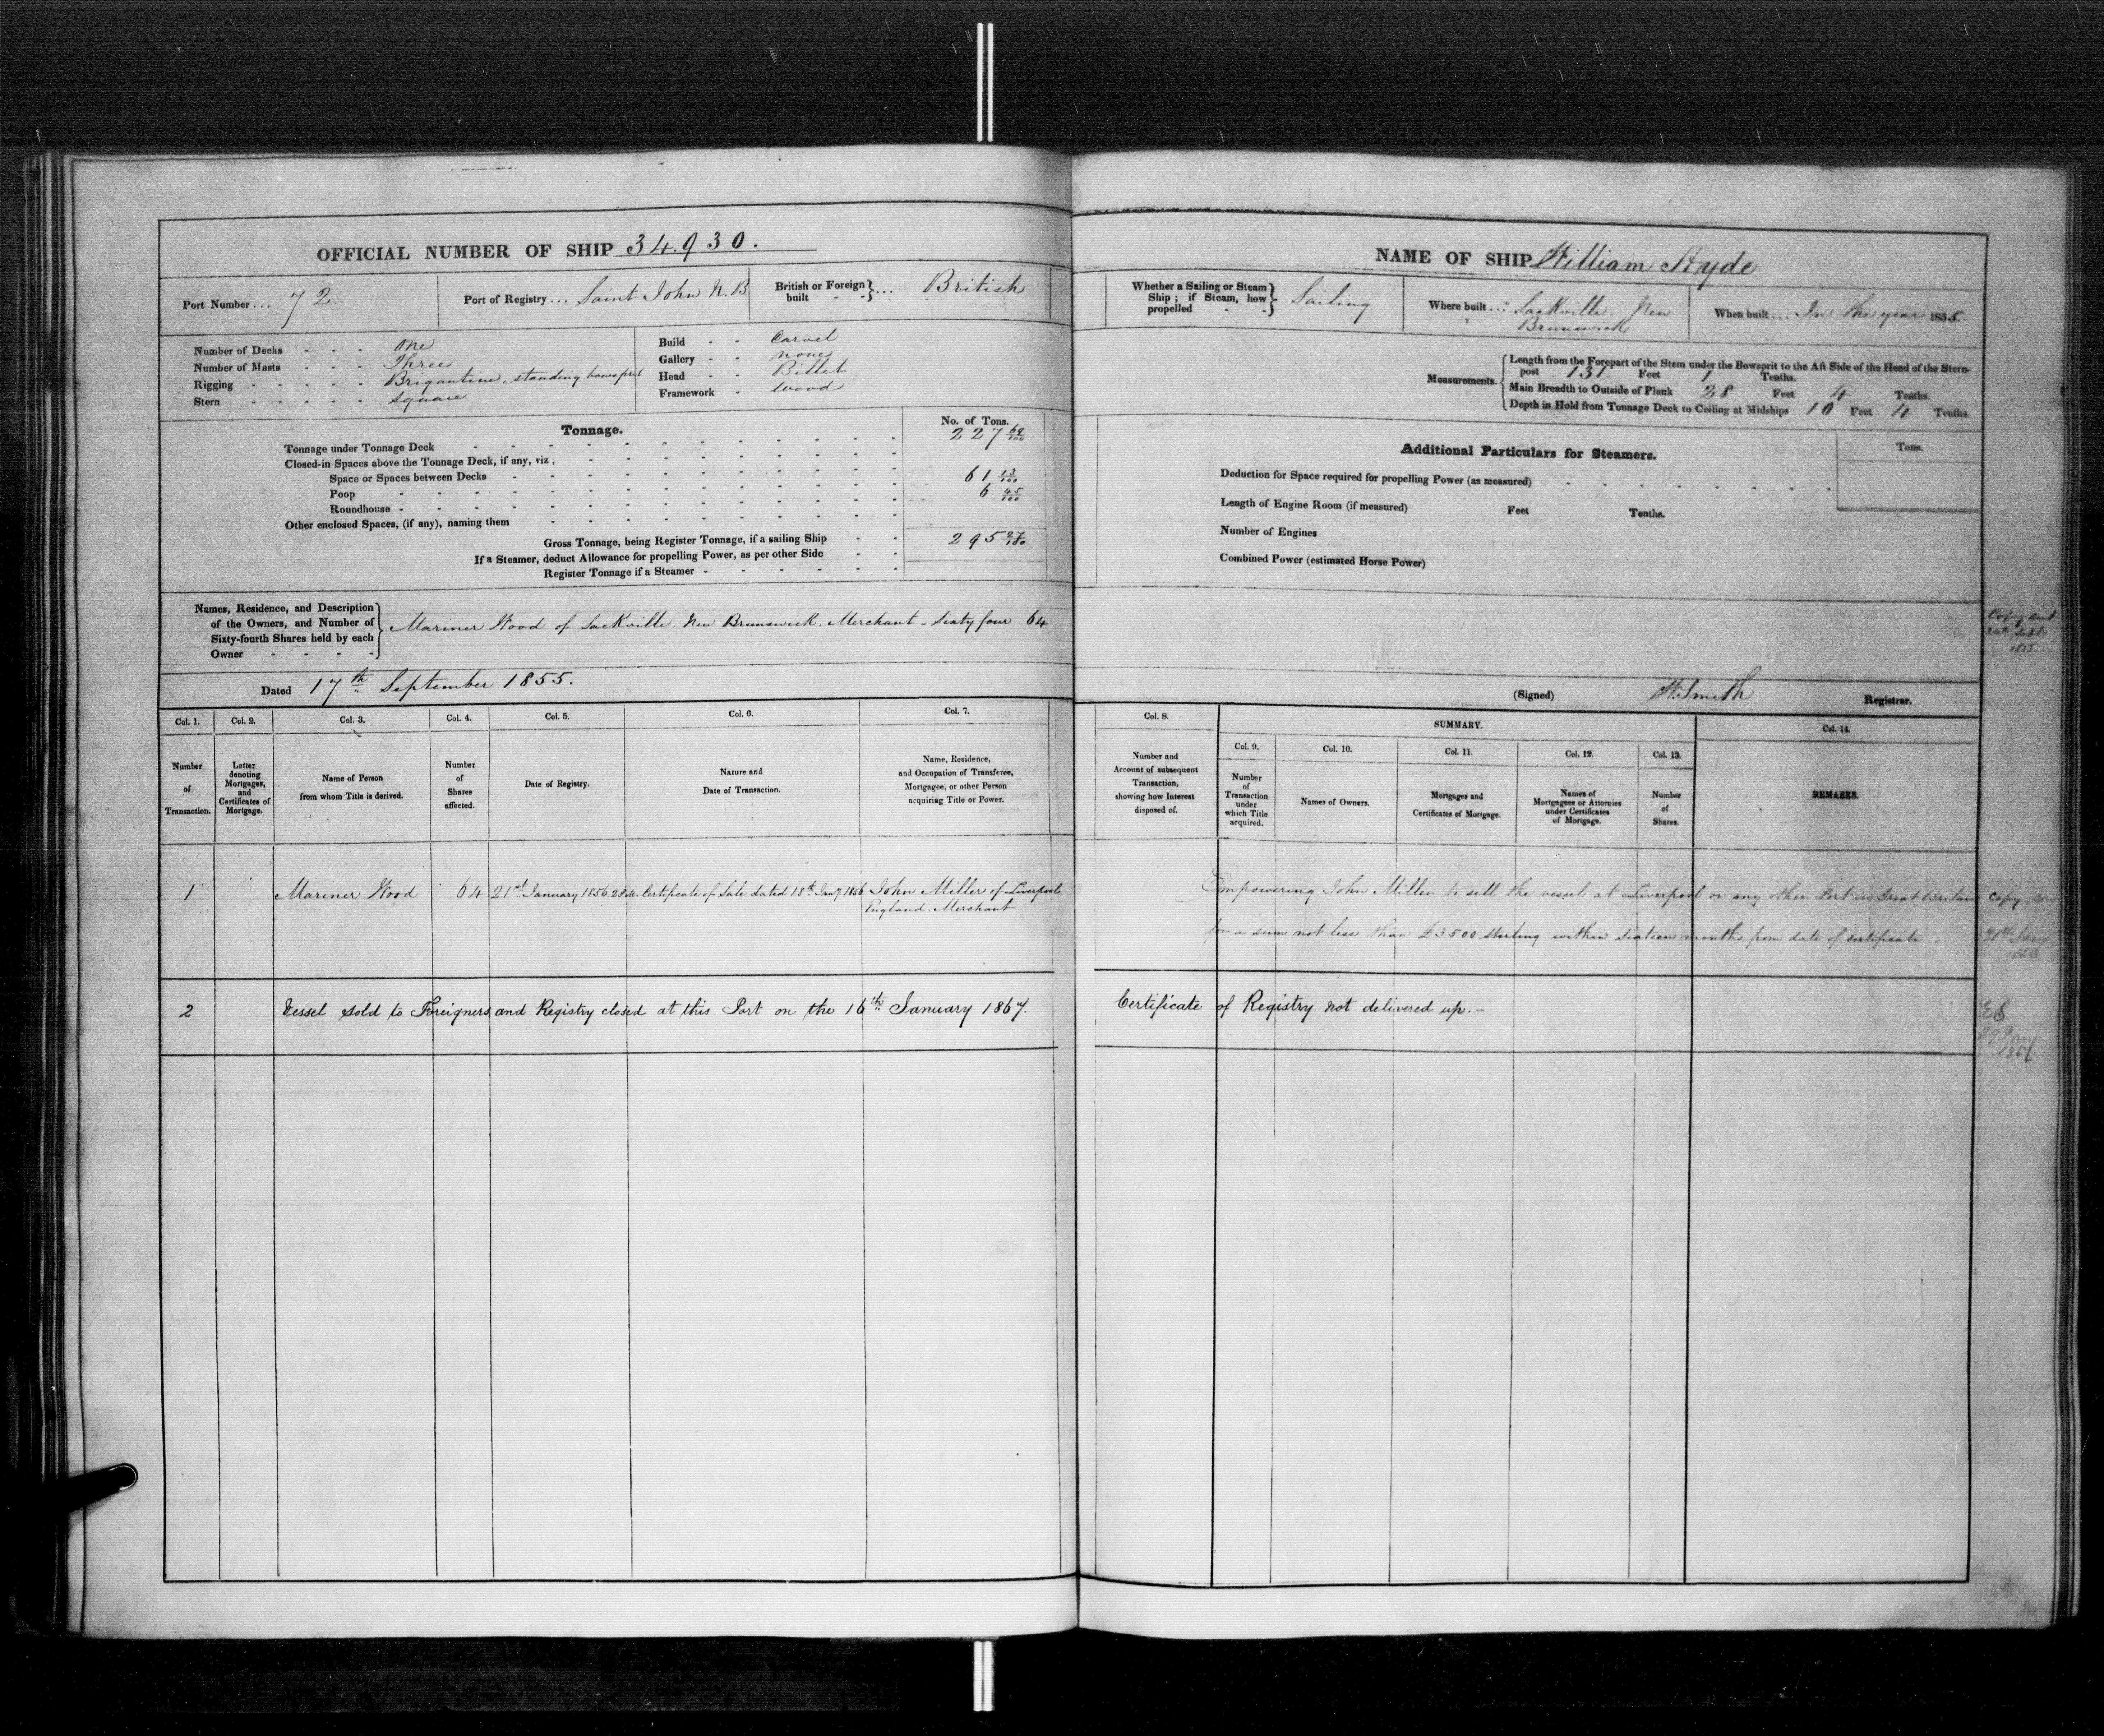 OFFICIAL NUMBER OF SHIP 34.930.
Port Number ... 72
Port of Registry ... Saint John N.B.
British or Foreign built ... British
Number of Decks - - - One
Number of Masts - - - Three
Rigging - - - - - Brigantine, standing bowsprit
Stern - - - - - Square
Build - - Carvel
Gallery - - None
Head - - Billet
Framework - Wood
Tonnage.
No. of Tons.
Tonnage under Tonnage Deck 227 69/100
Closed-in Spaces above the Tonnage Deck, if any, viz.,
Space or Spaces between Decks
Poop 61 13/100
Roundhouse 6 45/100
Other enclosed Spaces, (if any), naming them
Gross Tonnage, being Register Tonnage, if a sailing Ship 295 27/100
If a Steamer, deduct Allowance for propelling Power, as per other Side
Register Tonnage if a Steamer
Names, Residence, and Description
of the Owners, and Number of
Sixty-fourth Shares held by each
Owner
Mariner Wood of Sackville. New Brunswick. Merchant - Sixty four 64
Dated 17th September 1855.
Col. 1. Col. 2. Col. 3. Col. 4. Col. 5. Col. 6. Col. 7.
Number of Transaction.
Letter denoting Mortgages, and Certificates of Mortgage.
Name of Person from whom Title is derived.
Number of Shares affected.
Date of Registry.
Nature and Date of Transaction.
Name, Residence, and Occupation of Transferee, Mortgagee, or other Person acquiring Title or Power.
1 Mariner Wood 64 21st January 1856 2 P.M. Certificate of Sale dated 18th Jany 1856 John Miller of Liverpool
England. Merchant
2 Vessel sold to Foreigners and Registry closed at this Port on the 16th January 1867.
NAME OF SHIP William Hyde
Whether a Sailing or Steam Ship; if Steam, how propelled Sailing
Where built ... Sackville. New
Brunswick
When built ... In the year 1855.
Measurements.
Length from the Forepart of the Stem under the Bowsprit to the Aft Side of the Head of the Stern-
post - 131 - Feet 1 Tenths.
Main Breadth to Outside of Plank 28 Feet 4 Tenths.
Depth in Hold from Tonnage Deck to Ceiling at Midships 10 Feet 4 Tenths.
Additional Particulars for Steamers.
Tons.
Deduction for Space required for propelling Power (as measured)
Length of Engine Room (if measured) Feet Tenths.
Number of Engines
Combined Power (estimated Horse Power)
Copy sent
Sept
1855
(Signed) W. Smith Registrar.
Col. 8. SUMMARY. Col. 14.
Col. 9. Col. 10. Col. 11. Col. 12. Col. 13.
Number and Account of subsequent Transaction, showing how Interest disposed of.
Number of Transaction under which Title acquired.
Names of Owners.
Mortgages and Certificates of Mortgage.
Names of Mortgagees or Attornies under Certificates of Mortgage.
Number of Shares.
REMARKS.
Empowering John Miller to sell the vessel at Liverpool or any other Port in Great Britain
for a sum not less than £3500 sterling within sixteen months from date of certificate.
Copy
Jany
1856
Certificate of Registry not delivered up.-
ES
29 Jany
1867